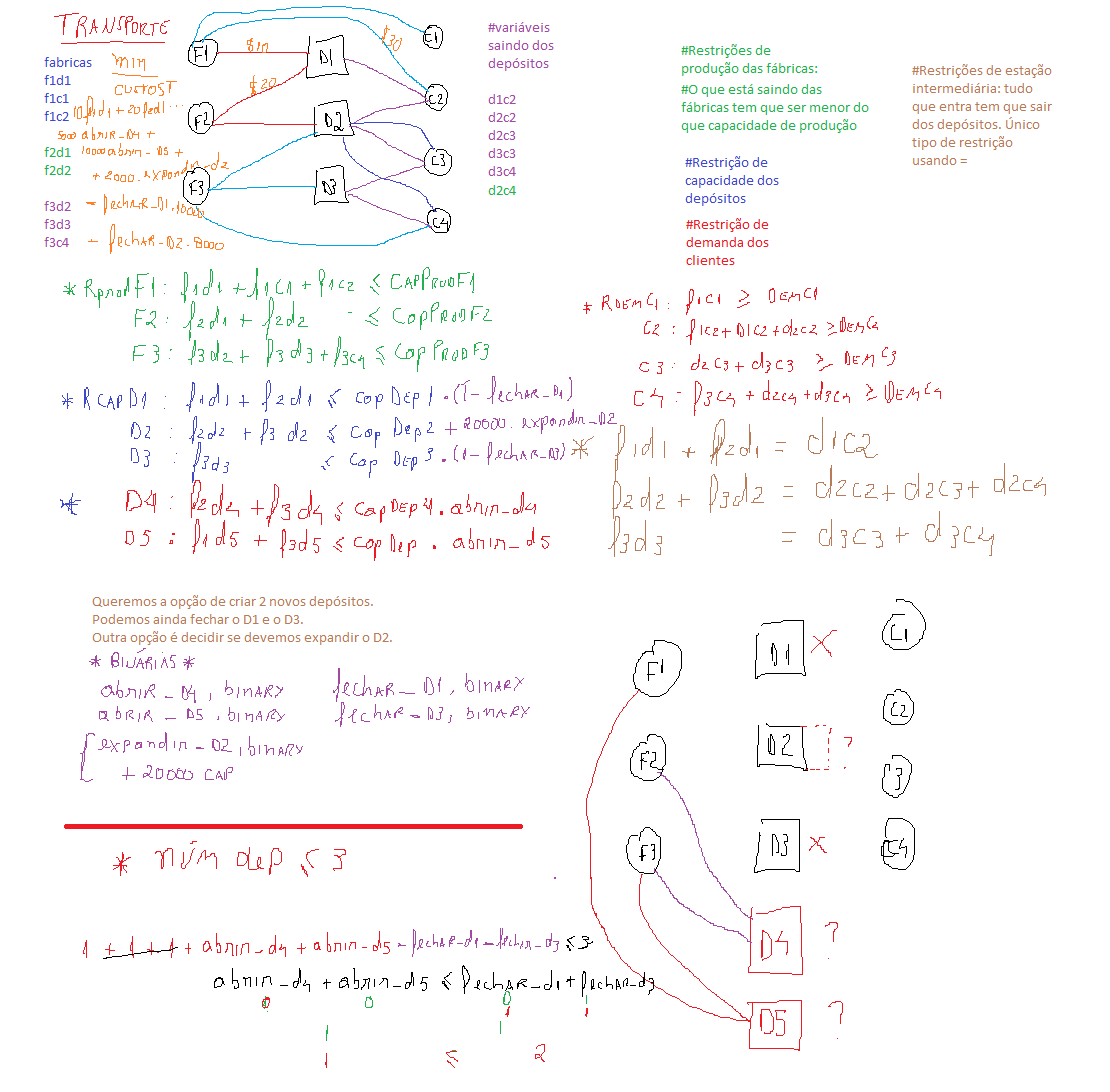 TRANSPORTE
fabricas
f1d1
f1c1
f1c2
f2d1
f2d2
f3d2
f3d3
f3c4
MIN
CUSTOST
10f1d1 + 20f2d1 ...
5000 abrir_D4 +
10000 abrir_D5 +
+ 2000.expandir_d2
- fechar_D1.10000
- fechar_D2.8000
F1
F2
F3
$10
$20
$30
D1
D2
D3
C1
C2
C3
C4
#variáveis
saindo dos
depósitos
d1c2
d2c2
d2c3
d3c3
d3c4
d2c4
#Restrições de
produção das fábricas:
#O que está saindo das
fábricas tem que ser menor do
que capacidade de produção
#Restrição de
capacidade dos
depósitos
#Restrição de
demanda dos
clientes
#Restrições de estação
intermediária: tudo
que entra tem que sair
dos depósitos. Único
tipo de restrição
usando =
* RprodF1: f1d1 + f1c1 + f1c2 ≤ CAPPRODF1
F2: f2d1 + f2d2 ≤ CapPRODF2
F3: f3d2 + f3d3 + f3c4 ≤ Cap PRODF3
* RCAPD1: f1d1 + f2d1 ≤ cap Dep1.(1-fechar_D1)
D2: f2d2 + f3d2 ≤ Cap Dep2 + 20000.expandir_D2
D3: f3d3 ≤ Cap Dep3.(1-fechar_D3)
* D4: f2d4 + f3d4 ≤ capDep4.abrir_d4
D5: f1d5 + f3d5 ≤ capDep.abrir_d5
* RDEMC1: f1c1 ≥ DEMC1
C2: f1c2 + D1C2 + d2c2 ≥ DEMC2
C3: d2c3 + d3c3 ≥ DEMC3
C4: f3c4 + d2c4 + d3c4 ≥ DEMC4
* f1d1 + f2d1 = d1c2
f2d2 + f3d2 = d2c2 + d2c3 + d2c4
f3d3 = d3c3 + d3c4
Queremos a opção de criar 2 novos depósitos.
Podemos ainda fechar o D1 e o D3.
Outra opção é decidir se devemos expandir o D2.
* BINÁRIAS *
abrir_D4, binary fechar_D1, binary
abrir_D5, binary fechar_D3, binary
expandir_D2, binary
+ 20000 CAP
* núm dep ≤ 3
1 + 1 + 1 + abrir_d4 + abrir_d5 - fechar_d1 - fechar_d3 ≤ 3
abrir_d4 + abrir_d5 ≤ fechar_d1 + fechar_d3
0 0 0 1
1 1
1 1
1 ≤ 2
F1
F2
F3
D1 X
D2 ?
D3 X
D4 ?
D5 ?
C1
C2
C3
C4